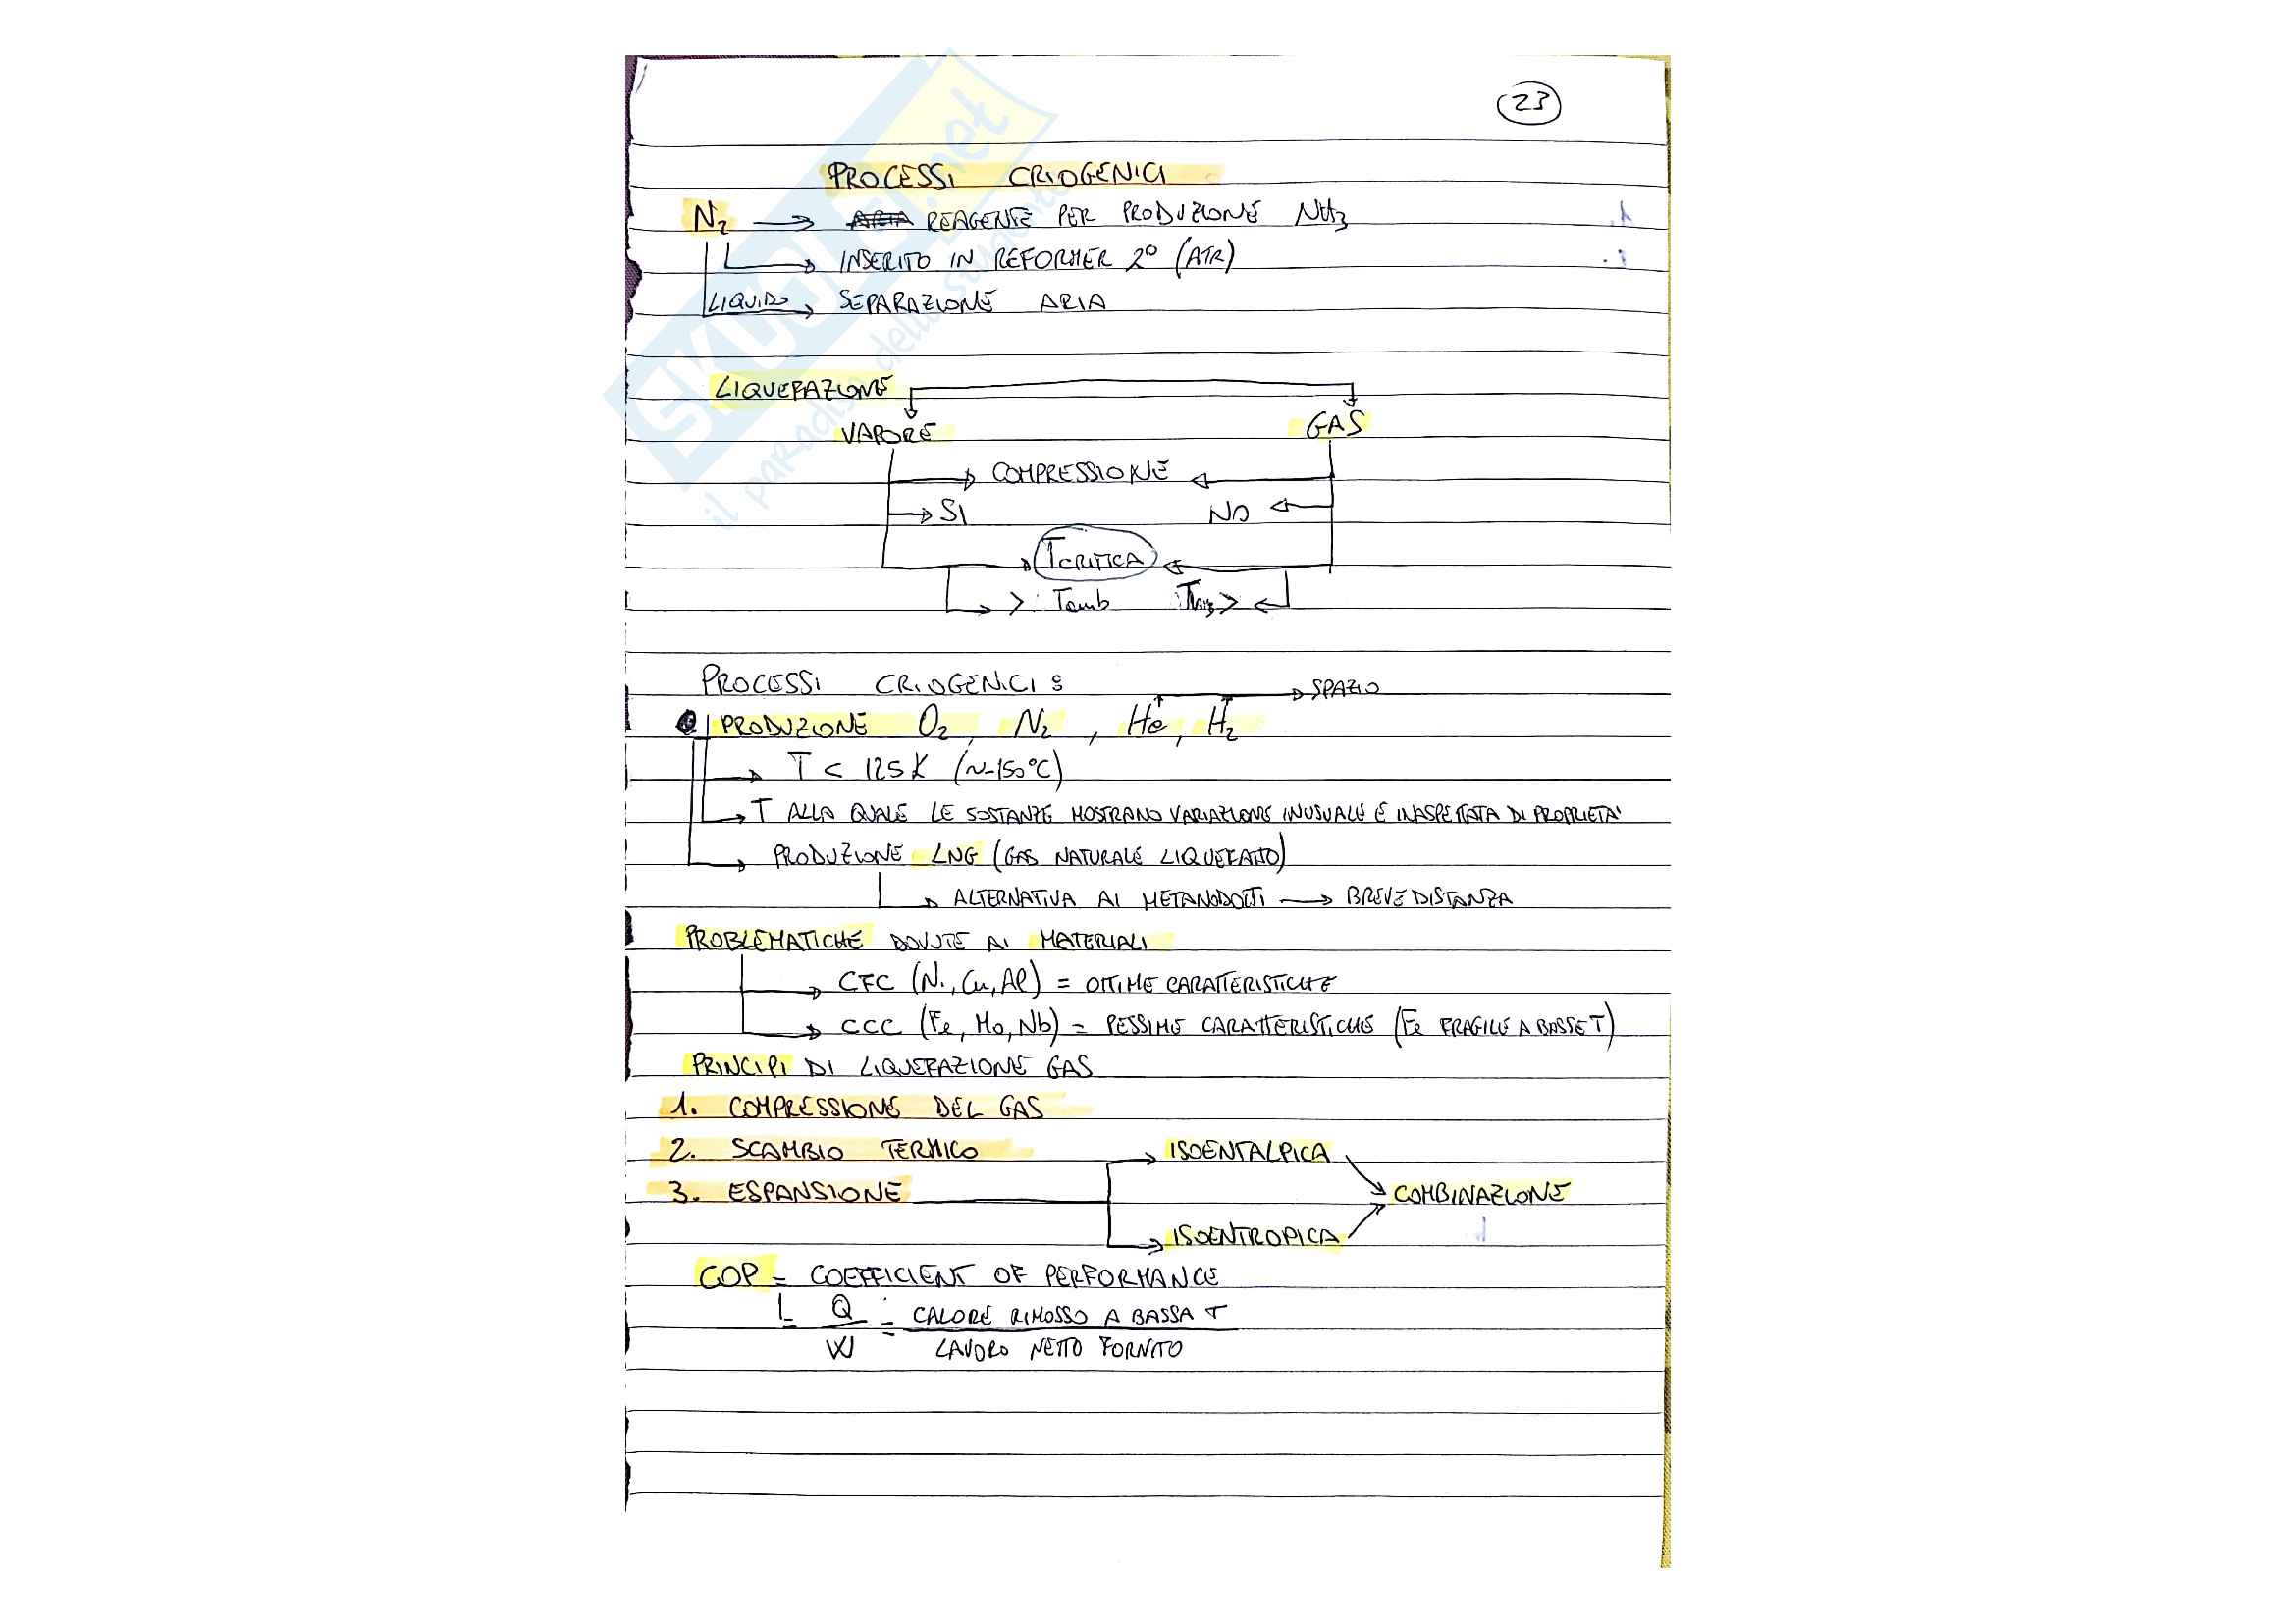 23
PROCESSI CRIOGENICI
N2 → REAGENTE PER PRODUZIONE NH3
→ INSERITO IN REFORMER 2° (ATR)
LIQUIDO → SEPARAZIONE ARIA
LIQUEFAZIONE
VAPORE GAS
→ COMPRESSIONE ←
→ SI NO ←
→ TCRITICA ←
→ > Tamb > ←
PROCESSI CRIOGENICI: → SPAZIO
PRODUZIONE O2, N2, He, H2
→ T < 125K (~-150°C)
→ T ALLA QUALE LE SOSTANZE MOSTRANO VARIAZIONE INUSUALE E INASPETTATA DI PROPRIETA'
→ PRODUZIONE LNG (GAS NATURALE LIQUEFATTO)
→ ALTERNATIVA AI METANODOTTI → BREVE DISTANZA
PROBLEMATICHE DOVUTE AI MATERIALI
→ CFC (Ni, Cu, Al) = OTTIME CARATTERISTICHE
→ CCC (Fe, Mo, Nb) = PESSIME CARATTERISTICHE (Fe FRAGILE A BASSE T)
PRINCIPI DI LIQUEFAZIONE GAS
1. COMPRESSIONE DEL GAS
2. SCAMBIO TERMICO → ISOENTALPICA
3. ESPANSIONE COMBINAZIONE
→ ISOENTROPICA
COP = COEFFICIENT OF PERFORMANCE
= Q = CALORE RIMOSSO A BASSA T
W LAVORO NETTO FORNITO
SKUOLA.net
il paradiso dello studente